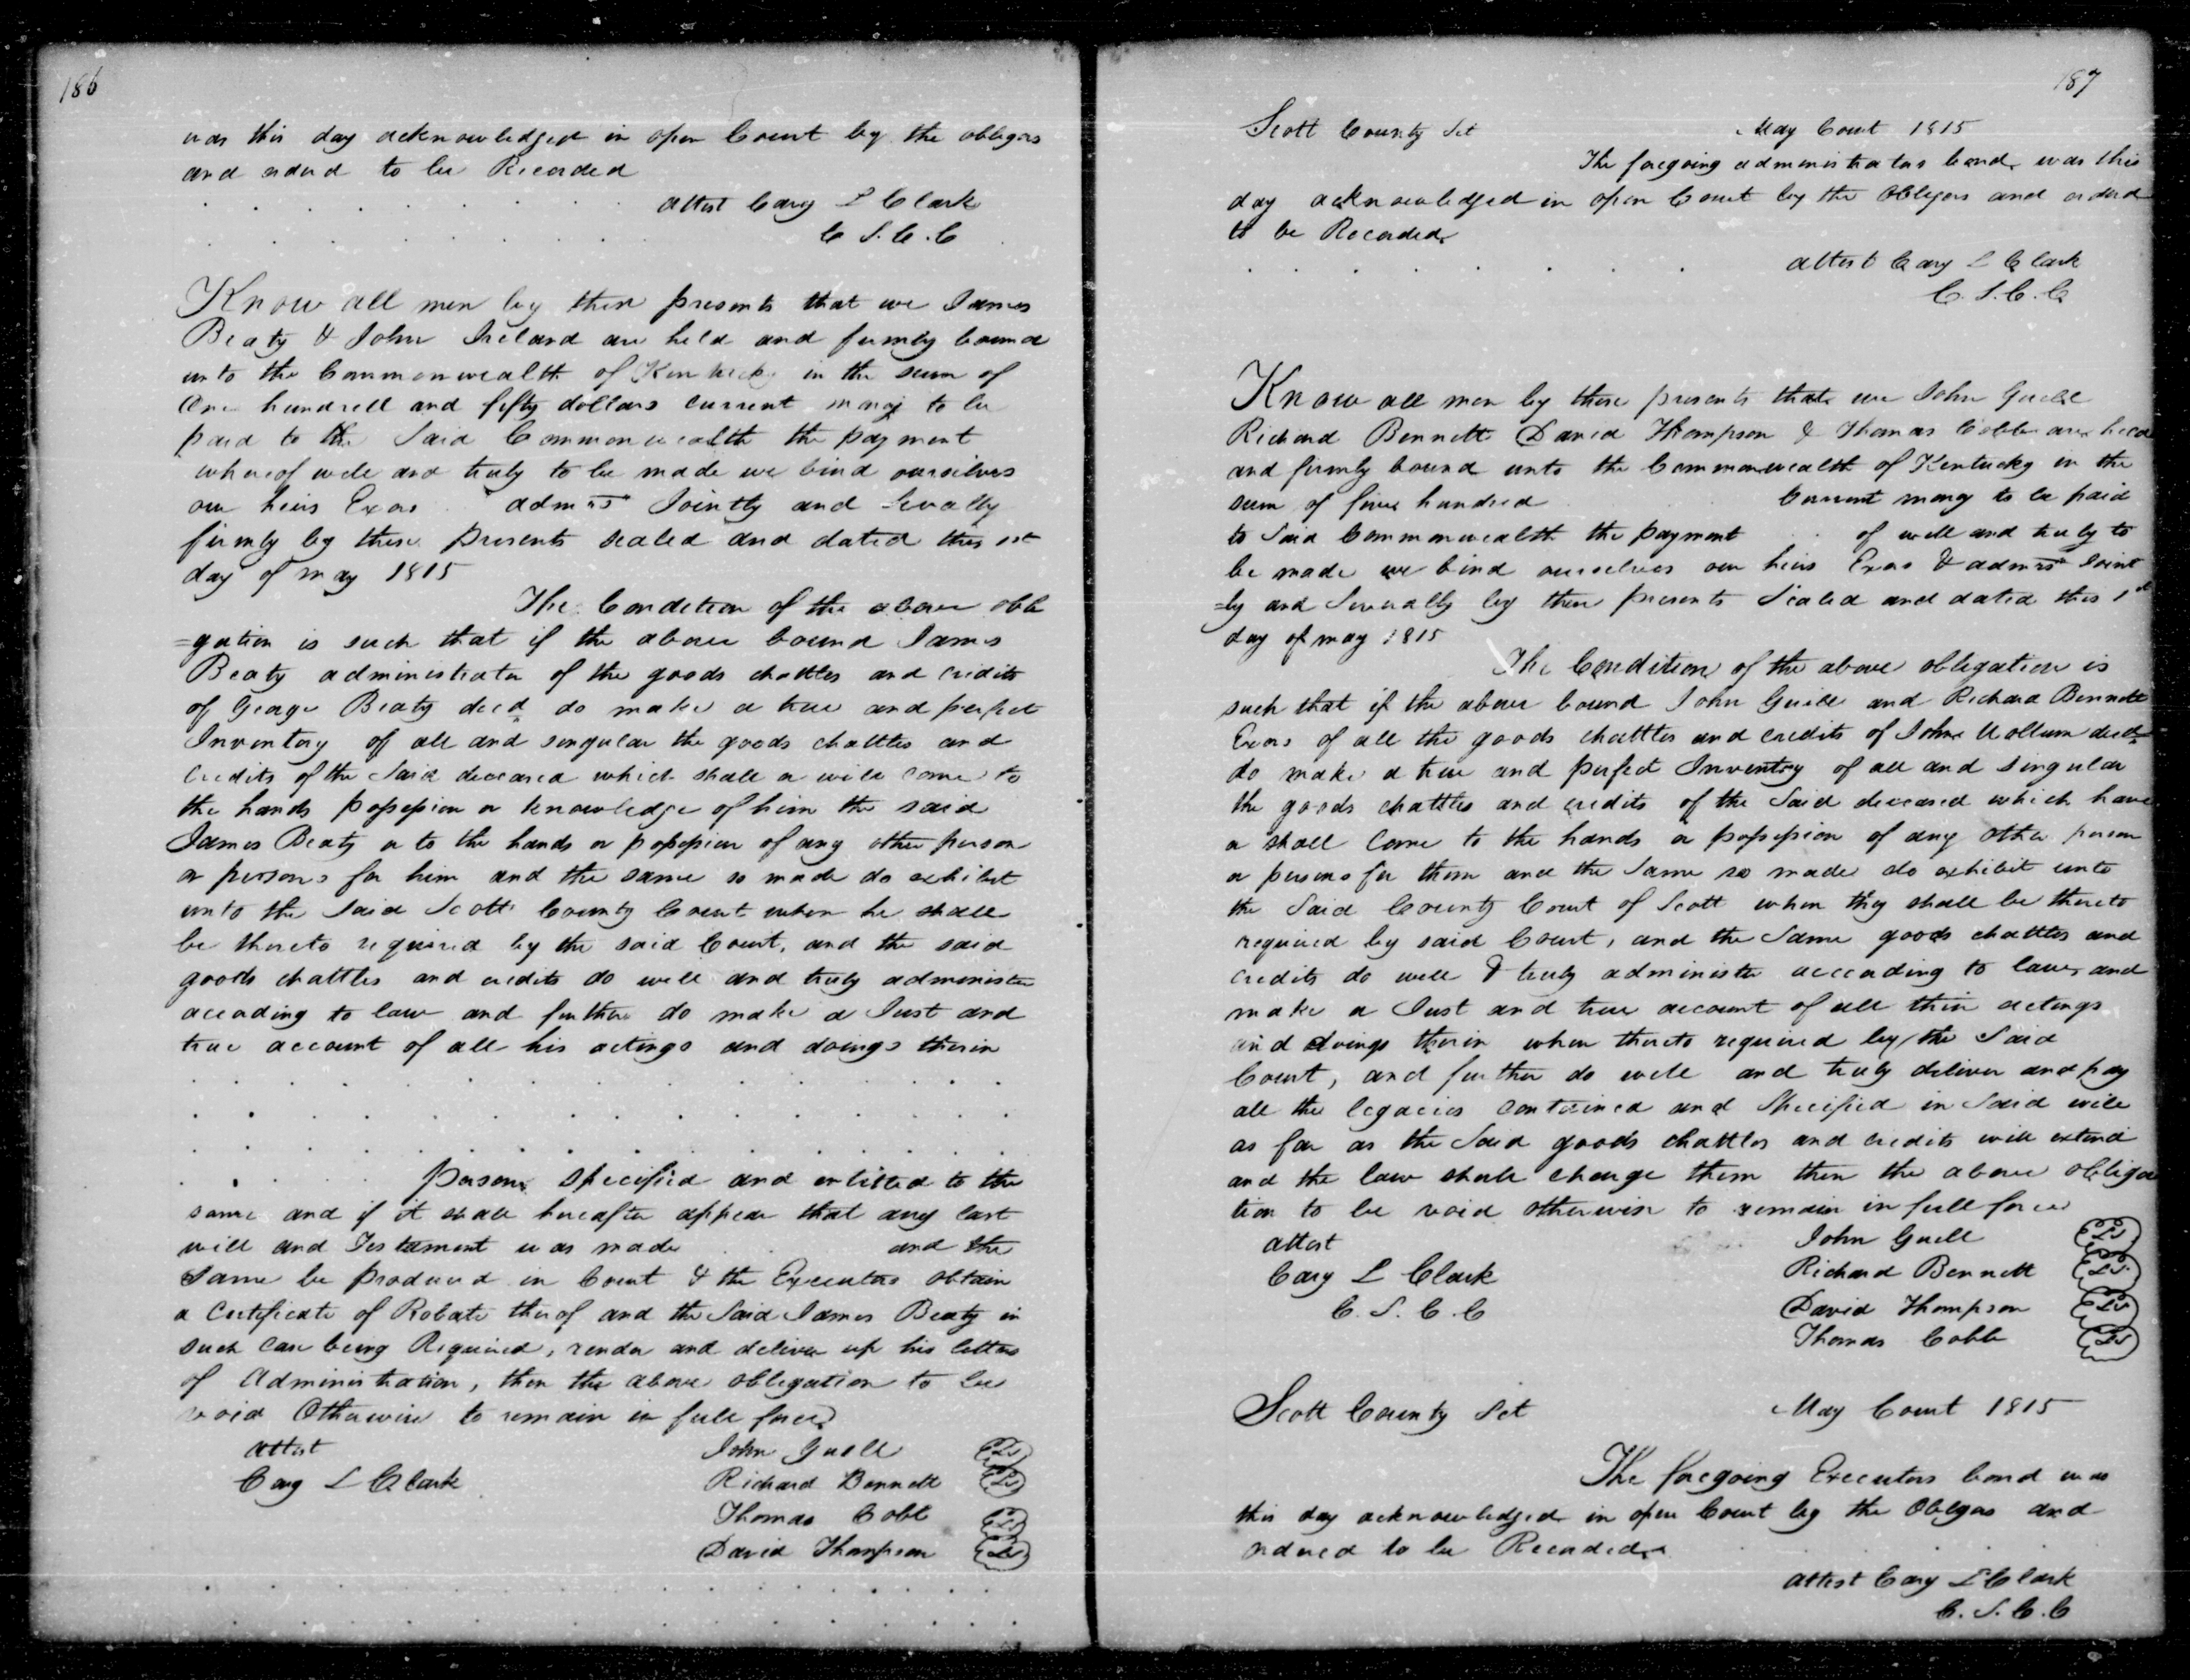 186
was this day acknowledged in open Court by the obligors
and ordered to be Recorded
attest Cary L Clark
C S. C. C
Know all men by these presents that we James
Beaty & John Ireland are held and firmly bound
unto the Commonwealth of Kentucky in the sum of
One hundred and fifty dollars current money to be
paid to the Said Commonwealth the payment
whereof well and truly to be made we bind ourselves
our heirs Exors admrs Jointly and Severally
firmly by these presents sealed and dated this 1st
day of may 1815
The Condition of the above obli
=gation is such that if the above bound James
Beaty administrator of the goods chattles and credits
of George Beaty decd do make a true and perfect
Inventory of all and singular the goods chattles and
credits of the Said deceased which shall or will come to
the hands possession or knowledge of him the said
James Beaty or to the hands or possession of any other person
or persons for him and the same so made do exhibit
unto the Said Scott County Court when he shall
be thereto required by the said Court, and the said
goods chattles and credits do well and truly administer
according to law and further do make a Just and
true account of all his actings and doings therein
persons specified and entitled to the
same and if it shall hereafter appear that any last
will and Testament was made and the
Same be produced in Court & the Executors obtain
a Certificate of Robate therof and the Said James Beaty in
such case being Required, render and deliver up his letters
of Administration, then the above obligation to be
void Otherwise to remain in full force
attest John Guell
Cary L Clark Richard Bennett
Thomas Cobb
David Thompson
187
Scott County Sct May Court 1815
The foregoing administrators bond was this
day acknowledged in open Court by the Obligors and ordered
to be Recorded
attest Cary L Clark
C. S. C. C
Know all men by these presents that we John Guell
Richard Bennett David Thompson & Thomas Cobb are held
and firmly bound unto the Commonwealth of Kentucky in the
sum of five hundred Current money to be paid
to Said Commonwealth the payment of well and truly to
be made we bind ourselves our heirs Exors & admrs Joint
=ly and Severally by these presents Sealed and dated this 1st
day of may 1815
The Condition of the above obligation is
such that if the above bound John Guill and Richard Bennett
Exors of all the goods chattles and credits of John Mollum decd
do make a true and perfect Inventory of all and singular
the goods chattles and credits of the Said deceased which have
or shall come to the hands or possession of any other person
or persons for them and the Same so made do exhibit unto
the Said County Court of Scott when they shall be thereto
required by said Court, and the Same goods chattles and
credits do well & truly administer according to law, and
make a Just and true account of all their actings
and doings therein when thereto required by the Said
Court, and further do well and truly deliver and pay
all the legacies contained and Specified in Said will
as far as the Said goods chattles and credits will extend
and the law shall charge them then the above obliga
tion to be void otherwise to remain in full force
attest John Guell
Cary L Clark Richard Bennett
C. S. C. C David Thompson
Thomas Cobb
Scott County Sct May Court 1815
The foregoing Executors bond was
this day acknowledged in open Court by the Obligors and
ordered to be Recorded
attest Cary L Clark
C. S. C. C